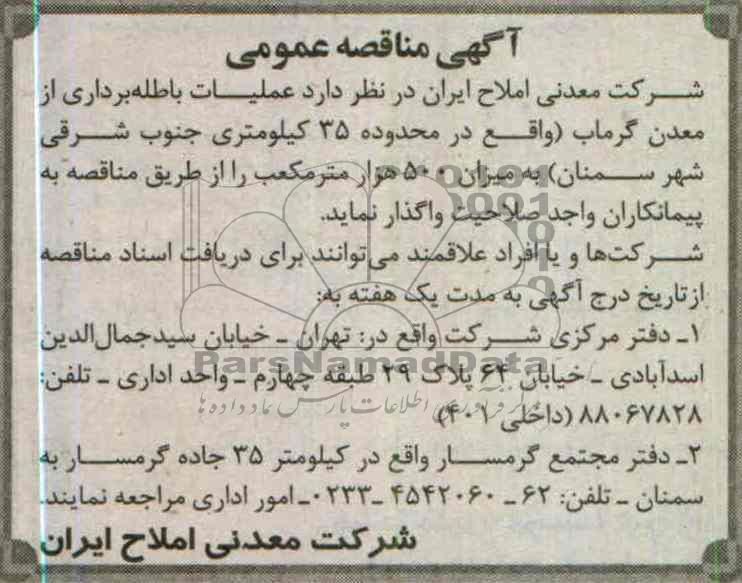 آگهی مناقصه عمومی
شرکت معدنی املاح ایران در نظر دارد عملیات باطله‌برداری از
معدن گرماب (واقع در محدوده ۳۵ کیلومتری جنوب شرقی
شهر سمنان) به میزان ۵۰۰ هزار مترمکعب را از طریق مناقصه به
پیمانکاران واجد صلاحیت واگذار نماید.
شرکت‌ها و یا افراد علاقمند می‌توانند برای دریافت اسناد مناقصه
ازتاریخ درج آگهی به مدت یک هفته به:
۱ـ دفتر مرکزی شرکت واقع در: تهران ـ خیابان سیدجمال‌الدین
اسدآبادی ـ خیابان ۶۴ پلاک ۲۹ طبقه چهارم ـ واحد اداری ـ تلفن:
ParsNamadData
۸۸۰۶۷۸۲۸ (داخلی ۴۰۱)
۲ـ دفتر مجتمع گرمسار واقع در کیلومتر ۳۵ جاده گرمسار به
سمنان ـ تلفن: ۶۲ ـ ۴۵۴۲۰۶۰ ـ۰۲۳۳ـ امور اداری مراجعه نمایند.
شرکت معدنی املاح ایران